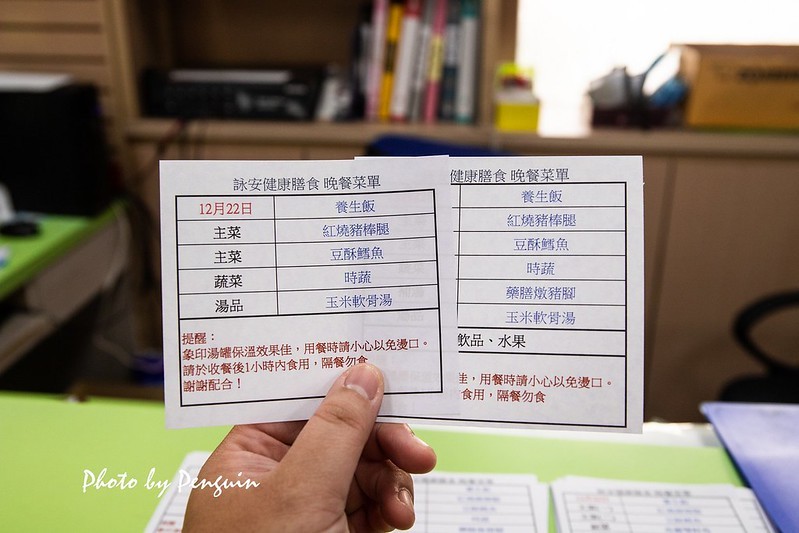 詠安健康膳食 晚餐菜單
12月22日 養生飯
主菜 紅燒豬棒腿
主菜 豆酥鱈魚
蔬菜 時蔬
湯品 玉米軟骨湯
提醒：
象印湯罐保溫效果佳，用餐時請小心以免燙口。
請於收餐後1小時內食用，隔餐勿食
謝謝配合！
安健康膳食 晚餐菜單
養生飯
紅燒豬棒腿
豆酥鱈魚
時蔬
藥膳燉豬腳
玉米軟骨湯
飲品、水果
佳，用餐時請小心以免燙口。
食用，隔餐勿食
Photo by Penguin